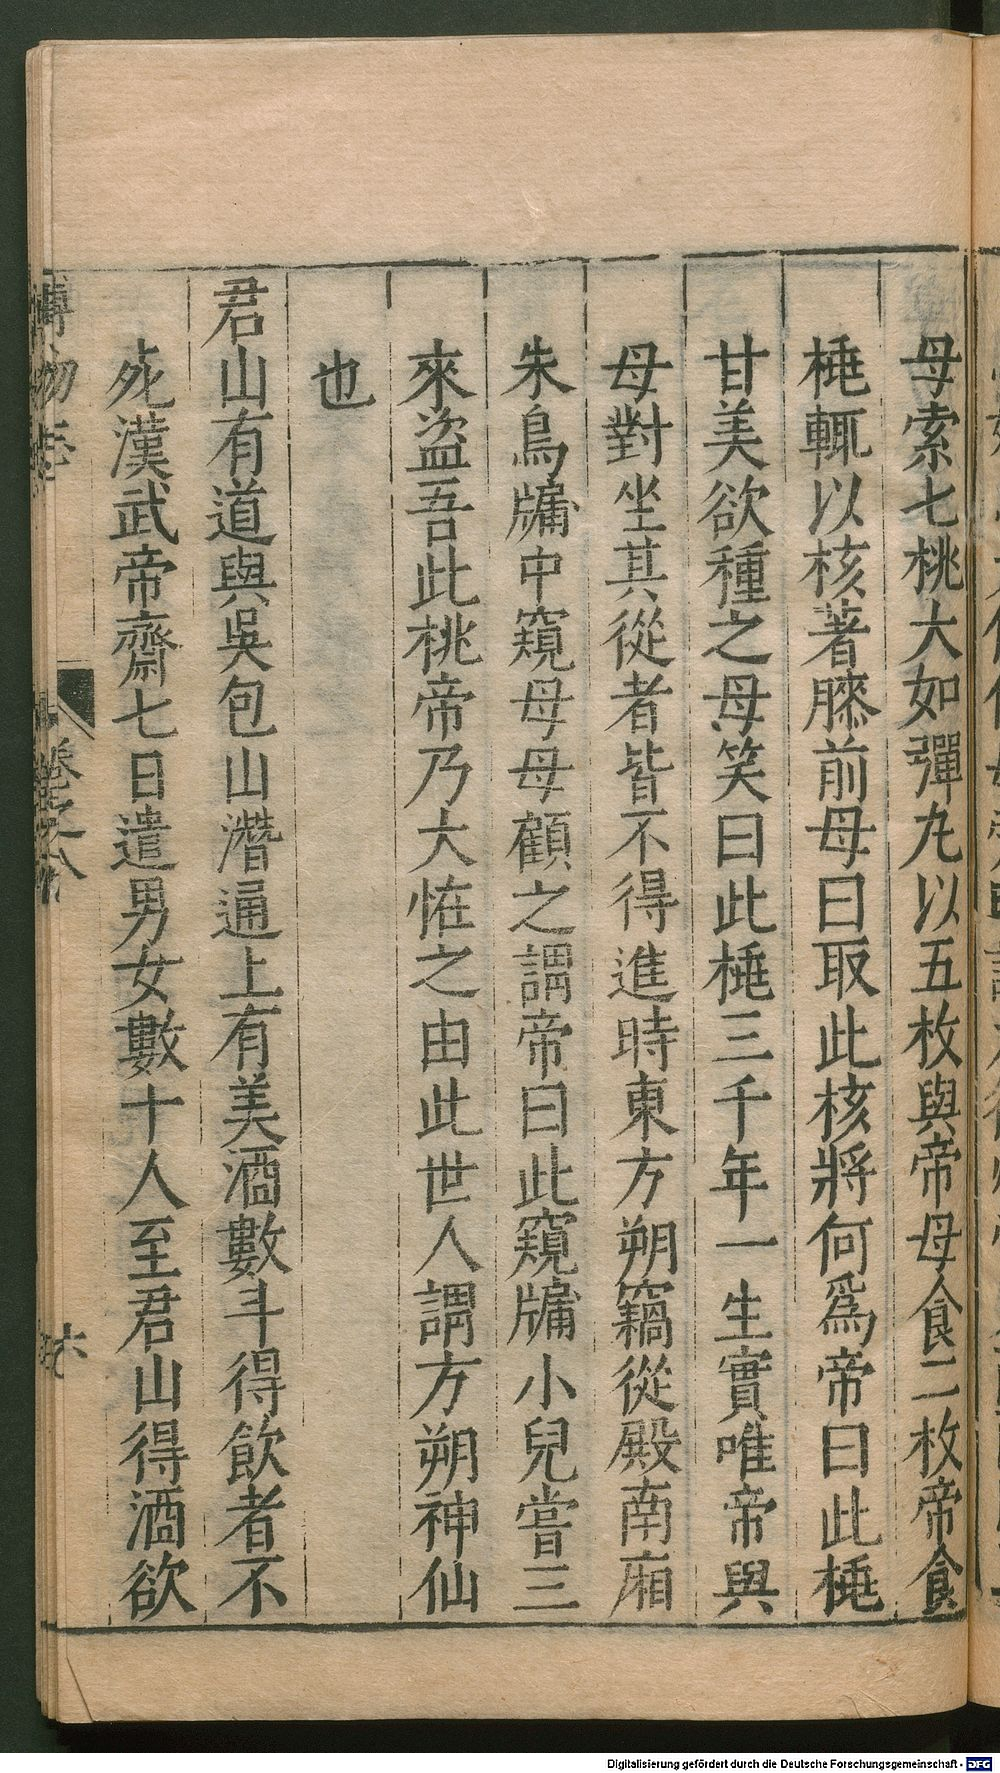 母索七桃大如彈丸以五枚與帝母食二枚帝食
桃輒以核著膝前母曰取此核將何爲帝曰此桃
甘美欲種之母笑曰此桃三千年一生實唯帝與
母對坐其從者皆不得進時東方朔竊從殿南廂
朱鳥牖中窺母母顧之謂帝曰此窺牖小兒嘗三
來盜吾此桃帝乃大恠之由此世人謂方朔神仙
也
君山有道與吳包山潛通上有美酒數斗得飲者不
死漢武帝齋七日遣男女數十人至君山得酒欲
博物志
卷之八
六
Digitalisierung gefördert durch die Deutsche Forschungsgemeinschaft - DFG